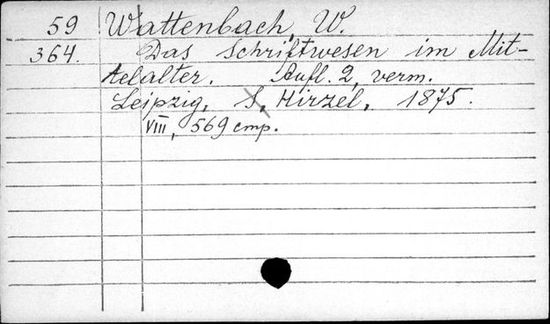 59 Wattenbach, W.
364. Das Schriftwesen im Mit-
telalter. Aufl. 2, verm.
Leipzig, S, Hirzel, 1875.
VIII, 569 cmp.